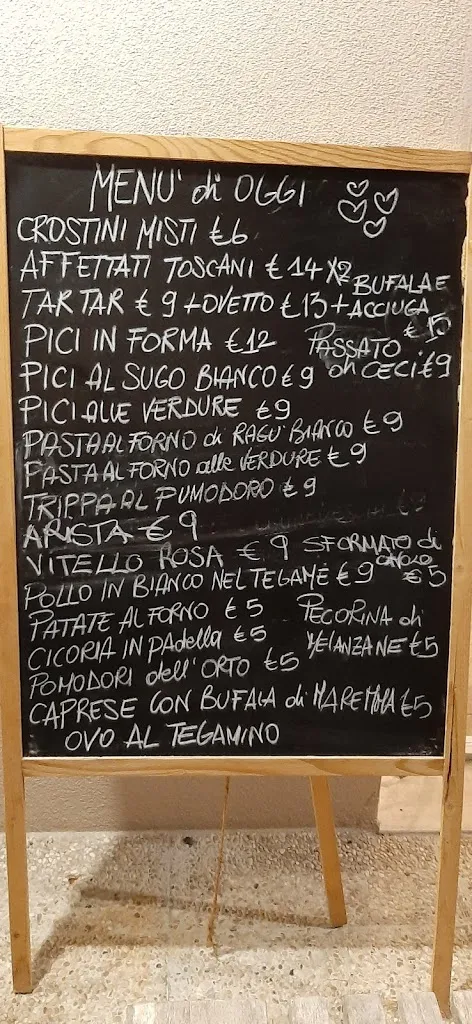 MENU' di OGGI
CROSTINI MISTI € 6
AFFETTATI TOSCANI € 14 X2
TARTAR € 9 + OVETTO € 13 + BUFALA E ACCIUGA € 15
PICI IN FORMA € 12
PASSATO di CECI € 9
PICI AL SUGO BIANCO € 9
PICI ALLE VERDURE € 9
PASTA AL FORNO di RAGU' BIANCO € 9
PASTA AL FORNO alle VERDURE € 9
TRIPPA AL PUMODORO € 9
ARISTA € 9
VITELLO ROSA € 9
SFORMATO di € 5
POLLO IN BIANCO NEL TEGAME € 9
PATATE AL FORNO € 5
PECORINA di MELANZANE € 5
CICORIA IN PAdella € 5
POMODORI dell'ORTO € 5
CAPRESE CON BUFALA di MAREMMA € 5
OVO AL TEGAMINO